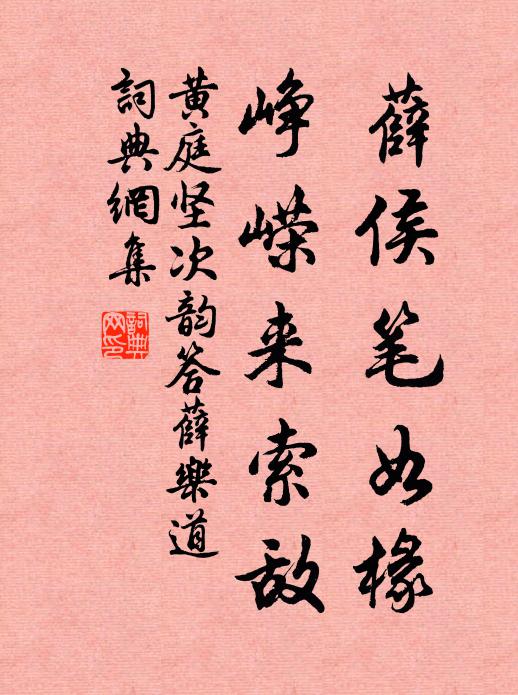 薛侯笔如椽
峥嵘来索敌
黄庭坚次韵答薛樂道
詞典網集